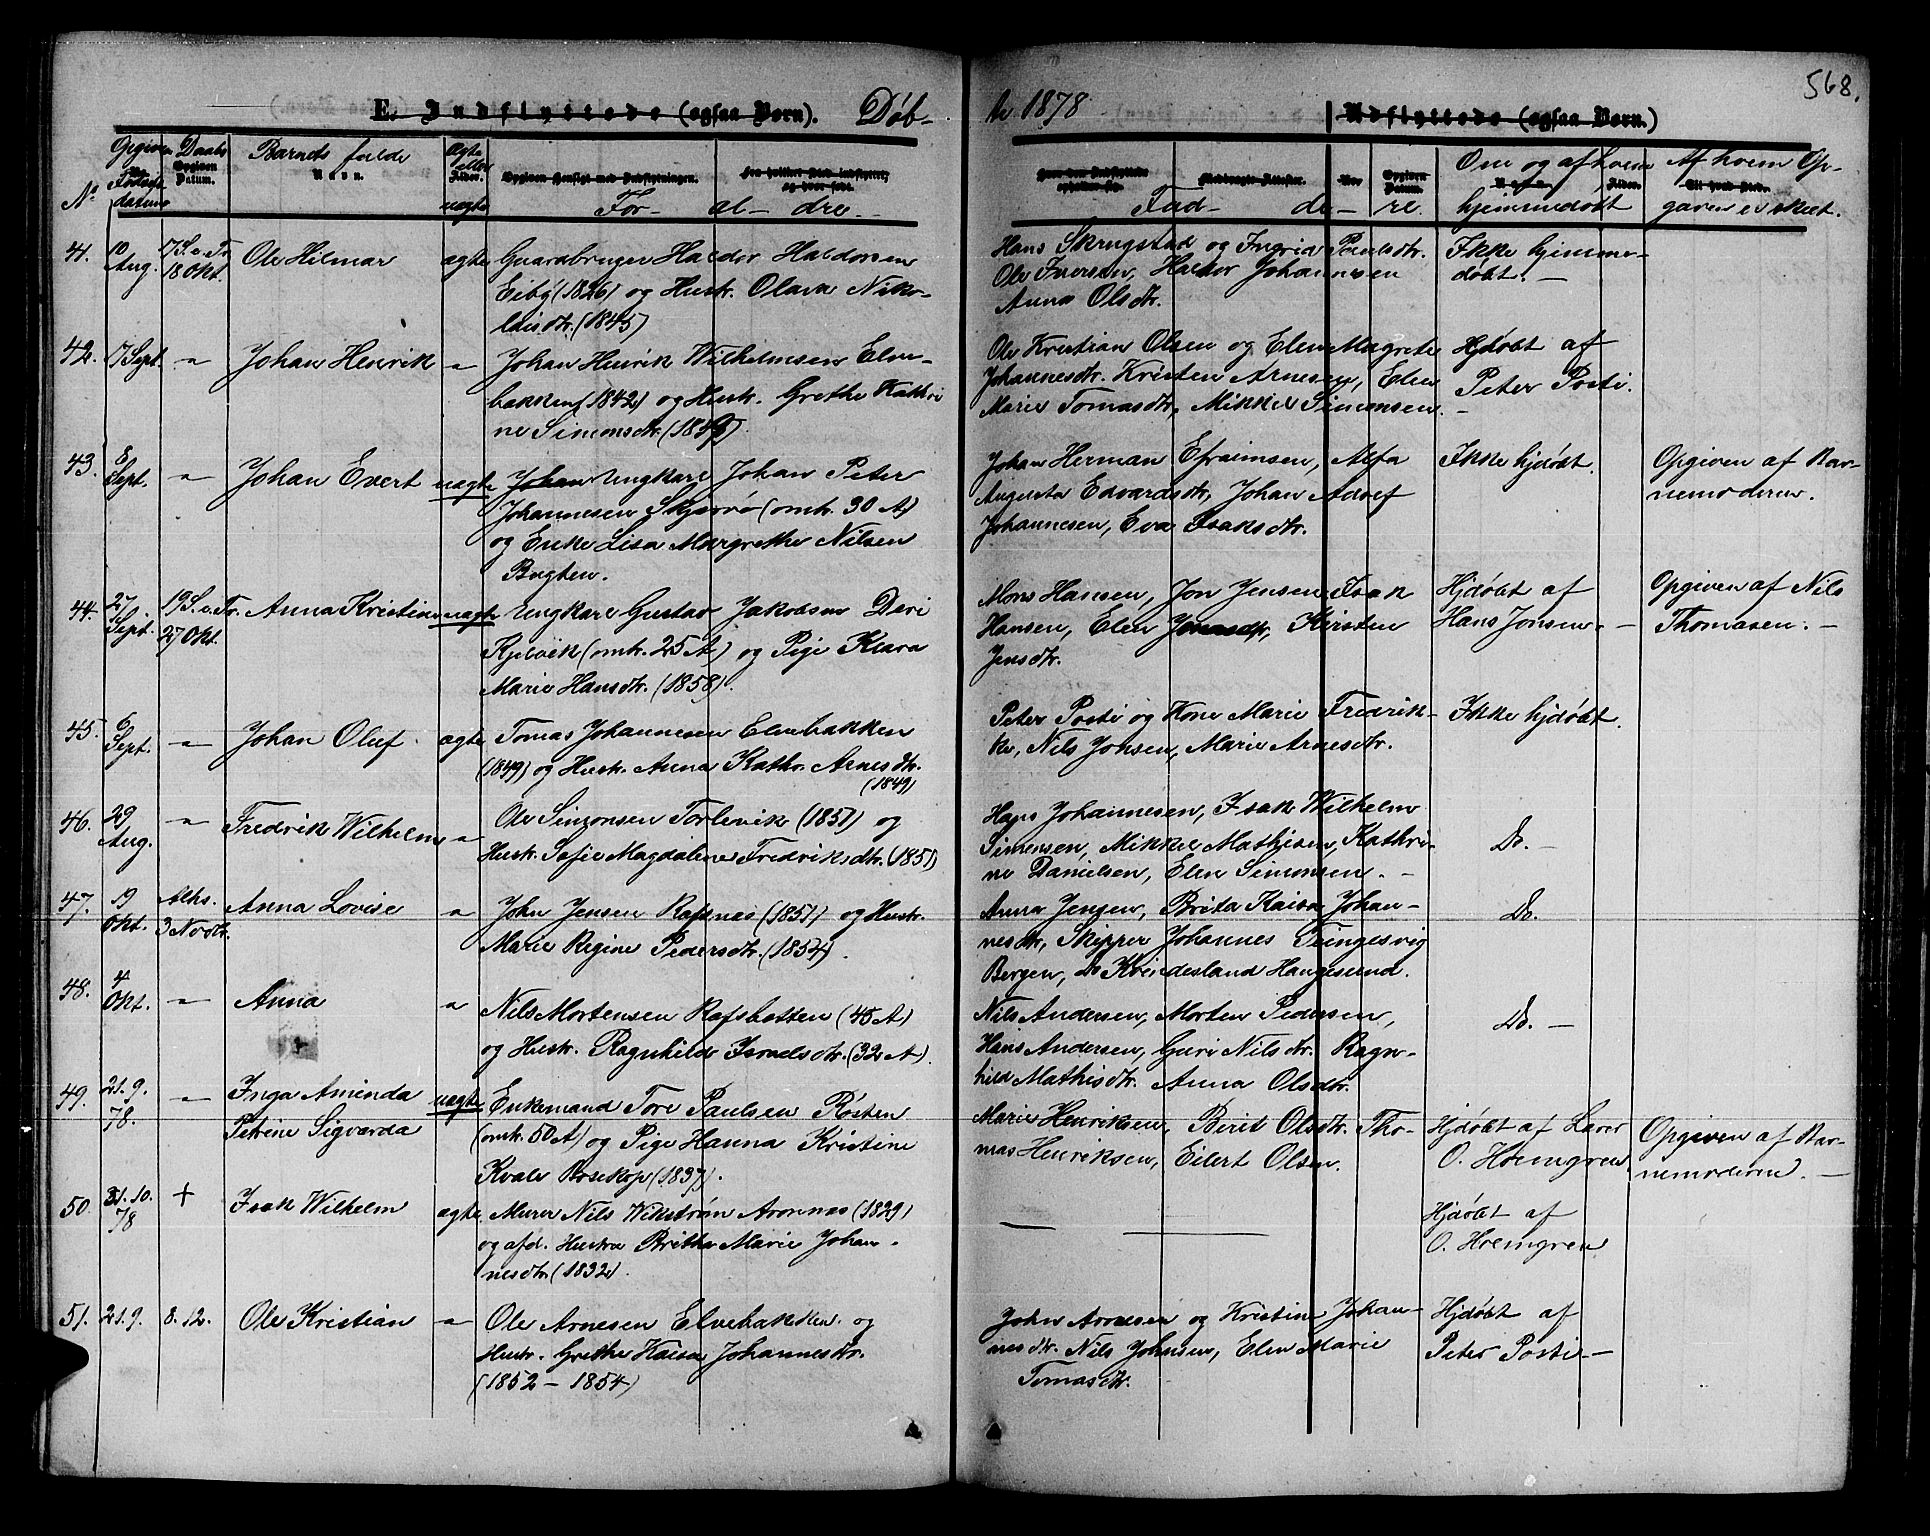 568.
E. Indflyttede (ogsaa Børn). Døb-
te 1878
Udflyttede (ogsaa Børn.)
No
Opgiven Fødselsdatum
Daabs Datum.
Barnets fulde Navn.
Ægte eller uægte
For- al- dre.
Fad- de- re.
Om og af hvem hjemmedøbt
Af hvem Opgaven er skeet.
41. 10 Aug. 17 S. e. Tr. 18 Okt. Ole Hilmar ægte Gaardbruger Haldor Haldorsen
Eiby (1826) og Hustr. Olava Niko-
laisdtr. (1845)
Hans Skrugstad og Ingrid Paulsdtr.
Ole Iversen, Haldor Johannesen
Anna Olsdtr.
Ikke hjemme-
døbt. -
42. 17 Sept. " Johan Henrik " Johan Henrik Wilhelmsen Elve-
bakken (1842) og Hustr. Grethe Kathri
ne Simonsdtr. (1849)
Ole Kristian Olsen og Elen Magrete
Johannesdtr. Kristen Arnesen, Elen
Marie Tomasdtr, Mikkel Simonsen.
Hjdøbt af
Peter Posti.
43. 8 Sept. " Johan Evert uægte Johan Ungkarl Johan Peter
Johannesen Skjervø (omtr. 30 A)
og Enke Lisa Margrethe Nilsen
Bugten.
Johan Herman Efraimsen, Alfa
Augusta Edvardsdtr, Johan Adolf
Johannesen, Eva Isaksdtr.
Ikke hjdøbt.
Opgiven af Bar-
nemoderen.
44. 27 Sept. 19 S. e. Tr. 27 Okt. Anna Kristine uægte Ungkarl Gustav Jakobsen Deri
Kjelvik (omtr. 25 A) og Pige Klara
Marie Hansdtr. (1858).
Mons Hansen, Jon Jensen Isak
Hansen, Elen Jonasdtr, Kirsten
Jensdtr.
Hjdøbt af
Hans Jonsen. -
Opgiven af Nils
Thomasen. -
45. 6 Sept. " Johan Oluf. ægte Tomas Johannesen Elvebakken
(1849) og Hustr. Anna Kathr. Arnesdtr.
(1849)
Peter Posti og Kone Marie Fredrik-
ke, Nils Johsen, Marie Arnesdtr.
Ikke hjdøbt.
46. 29 Aug. " Fredrik Wilhelm " Ole Simonsen Torlevik (1851) og
Hustr. Sofie Magdalene Fredriksdtr. (1851)
Hans Johannesen, Isak Wilhelm
Simensen, Mikkel Mathisen, Kathri-
ne Danielsen, Elen Simonsen. -
Do. -
47. 19 Okt. Alhs. 3 Novbr. Anna Lovise " John Jensen Rafsnæs (1851) og Hustr.
Marie Regine Pedersdtr. (1854).
Anna Jensen, Brita Kaisa Johan-
nesdtr, Skipper Johannes Tingesvig
Bergen, do Kvindesland Haugesund.
Do.
48. 4 Okt. " Anna " Nils Mortensen Rafsbotten (45 A)
og Hustr. Ragnhilde Israelsdtr. (32 A).
Nils Andersen, Morten Pedersen,
Hans Andersen, Guri Nilsdtr. Ragn-
hild Mathisdtr. Anna Olsdtr.
Do. -
49. 21. 9. 78. " Inga Aminda
Petrine Sigvarda uægte Enkemand Tore Paulsen Røsten
(omtr. 50 A) og Pige Hanna Kristine
Kvale Bosekop (1837).
Marie Henriksen, Berit Olsdtr. Tho-
mas Henriksen, Eilert Olsen.
Hjdøbt af Lærer
O. Holmgren
Opgiven af Bar-
nemoderen. -
50. 31. 10. 78 + Isak Wilhelm ægte Murer Nils Wikstrøm Aronnæs (1829)
og afd. Hustru Britha Marie Johan-
nesdtr. (1832).
Hjdøbt af
O. Holmgren
51. 21. 9. 8. 12. Ole Kristian " Ole Arnesen Elvebakken og
Hustr. Grethe Kaisa Johannesdtr.
(1852 - 1854)
John Arnesen og Kristine Johan-
nesdtr. Nils Johnsen, Elen Marie
Tomasdtr.
Hjdøbt af
Peter Posti -